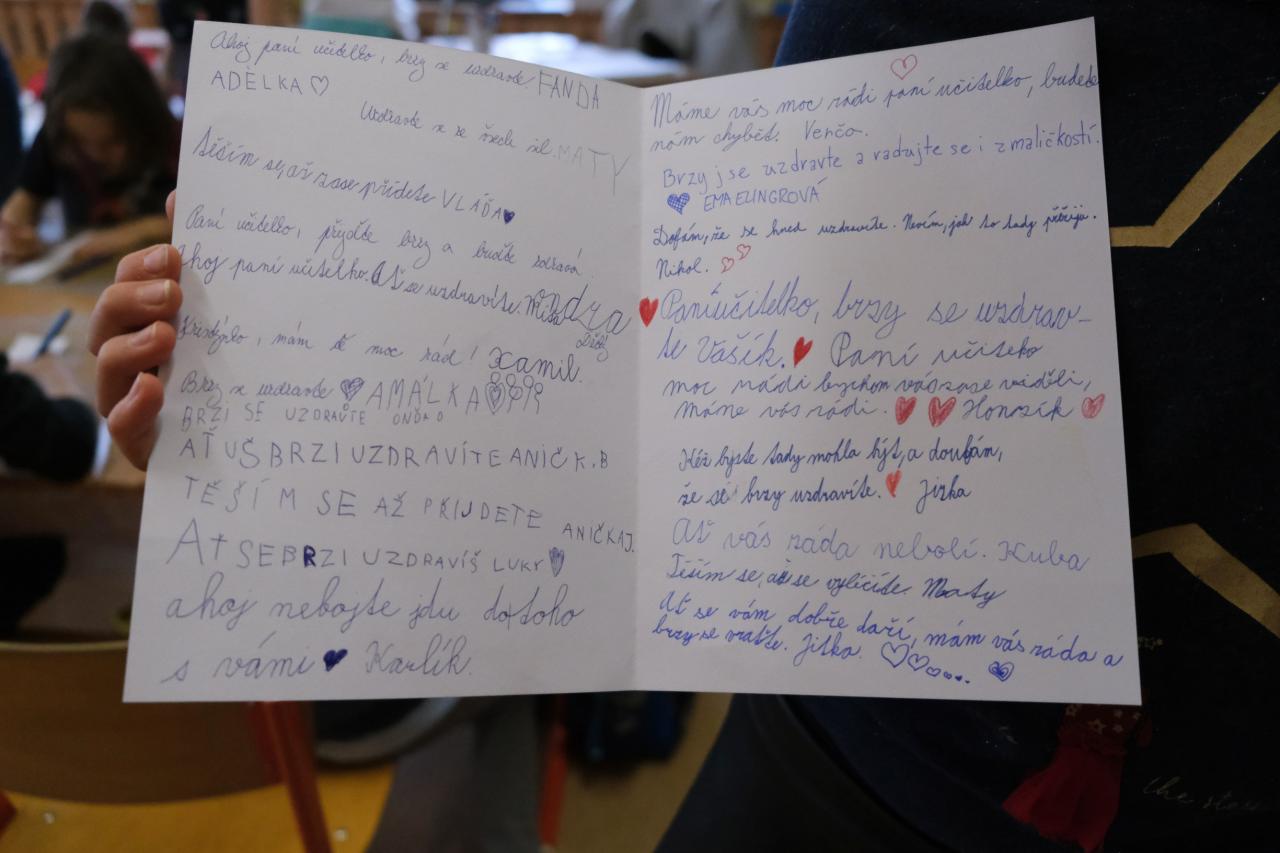 Ahoj paní učitelko, brzy se uzdravte. FANDA
ADÉLKA
Uzdravte se ze všech sil. MATY
těším se, až zase přijdete VLÁĎA
Paní učitelko, přijďte brzy a buďte zdravá.
Ahoj paní učitelko. Ať se uzdravíte. Míša
, mám tě moc rád! Kamil.
Brzy se uzdravte AMÁLKA
BRZI SE UZDRAVTE
AŤ UŠ BRZI UZDRAVÍTE ANIČK.B
TĚŠÍM SE AŽ PŘIJDETE ANIČKA J.
AŤ SE BRZI UZDRAVÍŠ LUKY
ahoj nebojte jdu do toho
s vámi Karlík.
Máme vás moc rádi paní učitelko, budete
nám chybět. Venča.
Brzy jse uzdravte a radujte se i z maličkostí.
EMA ELINGROVÁ
Doufám, že se hned uzdravíte. Nevím, jak to tady přežiju.
Nikol.
Paní učitelko, brzy se uzdrav-
te Vašík. Paní učiteko
moc rádi bychom vás zase viděli,
máme vás rádi. Honzík
Kéž byste tady mohla být, a doufám,
že se brzy uzdravíte. Jitka
Ať vás záda nebolí. Kuba
Těším se, až se vyléčíte. Maty
Ať se vám dobře daří, mám vás ráda a
brzy se vraťte. Jitka.
the